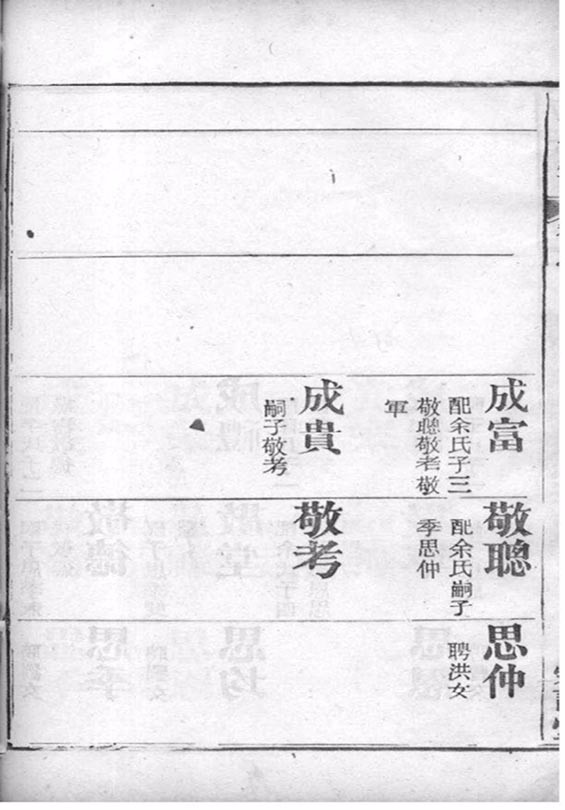 成富
配余氏子三
敬聰敬耉敬
軍
成貴
嗣子敬考
敬聰
配余氏嗣子
季思仲
敬考
思仲
聘洪女